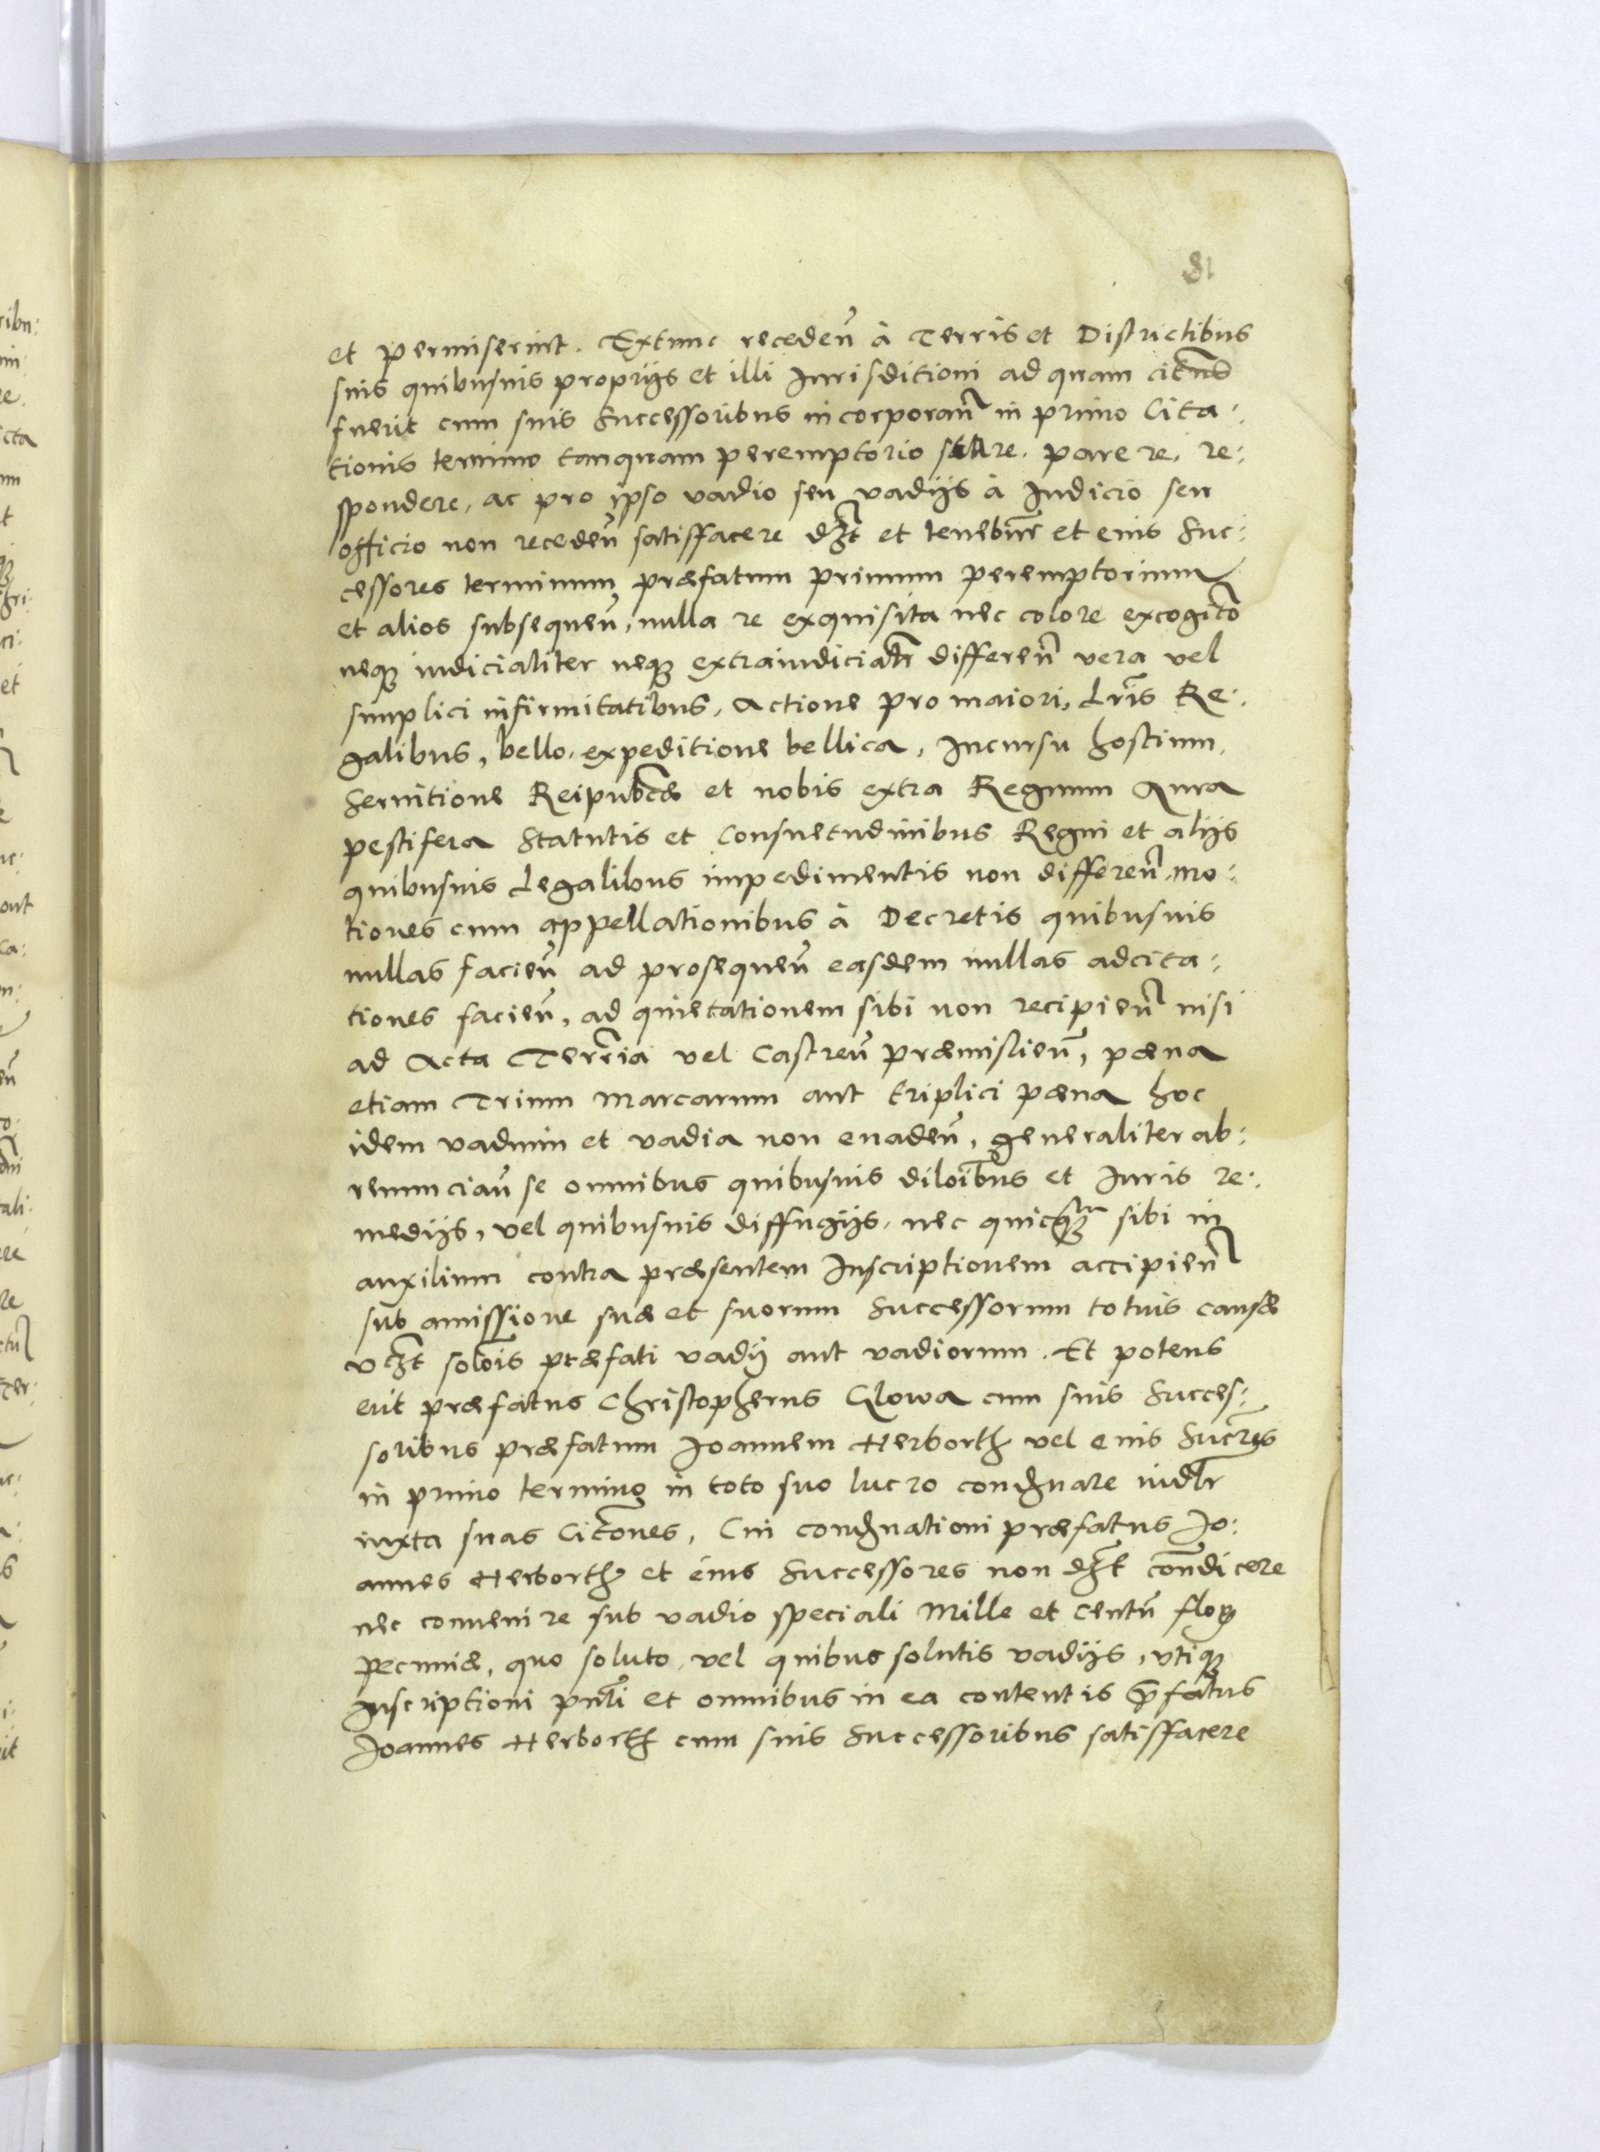 81
et permiserint. Extunc receden̄ à Terris et Districtibus
suis quibusuis proprijs et illi Jurisditioni ad quam citatus
fuerit cum suis Successoribus incorporan̄ in primo Cita:
tionis termino tanquam peremptorio stare. parere, re:
spondere, ac pro ipso vadio seu vadijs à Judicio seu
officio non receden̄ satisfacere dēbt et tenebūr et eius Suc:
cessores terminum præfatum primum peremptorium
et alios subsequen̄, nulla re exquisita nec colore excogitō
neq₃ iudicialiter neq₃ extraiudicialr̄ differen̄ vera vel
simplici infirmitatibus, Actione pro maiori, Lrīs Re:
galibus, bello, expeditione bellica, Incursu hostium,
Seruitione Reipubcæ et nobis extra Regnum Aura
pestifera Statutis et Consuetudinibus Regni et alijs
quibusuis Legalibus impedimentis non differen̄, mo:
tiones cum appellationibus à Decretis quibusuis
nullas facien̄ ad prosequen̄ easdem nullas adcita:
tiones facien̄, ad quietationem sibi non recipien̄ nisi
ad Acta Terrīa vel Castren̄ præmislien̄, pæna
etiam Trium Marcarum aut triplici pæna hoc
idem vadium et vadia non euaden̄, generaliter ab:
renuncian̄ se omnibus quibusuis diloībus et Juris re:
medijs, vel quibusuis diffugijs, nec quicq₃ sibi in
auxilium contra præsentem Inscriptionem accipien̄
sub amissione suæ et suorum Successorum totius causæ
v₃t solōis præfati vadij aut vadiorum. Et potens
erit præfatus Christopherus Glowa cum suis Succes:
soribus præfatum Joannem Herborth vel eius Sucr̄es
in primo termino in toto suo lucro condn̄are iudlr̄
iuxta suas Citōnes, Cui condn̄ationi præfatus Jo:
annes Herborth et eius Successores non dēbt con̄dicere
nec conuenire sub vadio speciali Mille et Centū flor₃
pecuniæ, quo soluto, vel quibus solutis vadijs, vtiq₃
Inscriptioni pn̄ti et omnibus in ea contentis p̄fatus
Joannes Herborth cum suis Successoribus satisfacere